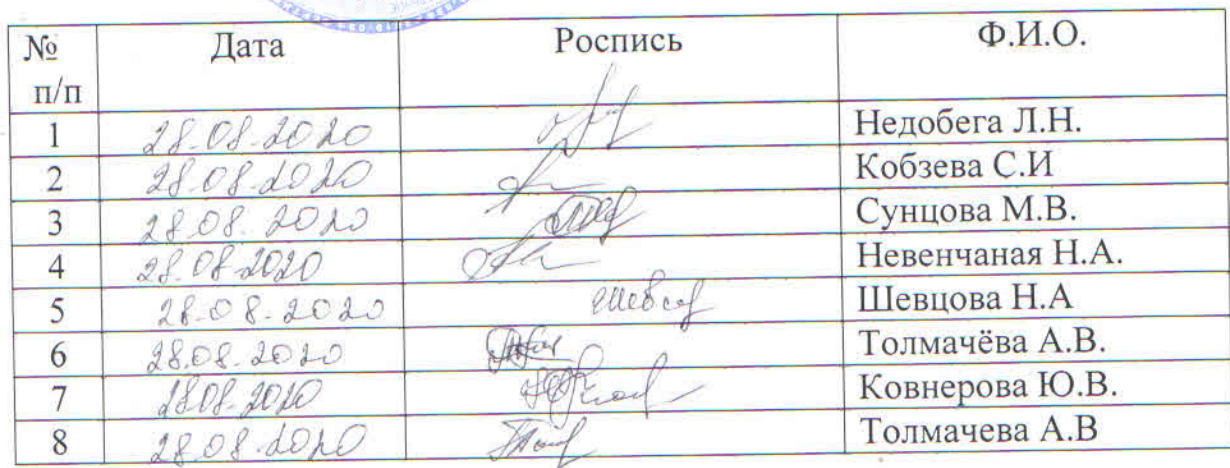 № п/п Дата Роспись Ф.И.О.
1 28.08.2020 Недобега Л.Н.
2 28.08.2020 Кобзева С.И
3 28.08.2020 Сунцова М.В.
4 28.08.2020 Невенчаная Н.А.
5 28.08.2020 Шевцова Н.А
6 28.08.2020 Толмачёва А.В.
7 28.08.2020 Ковнерова Ю.В.
8 28.08.2020 Толмачева А.В